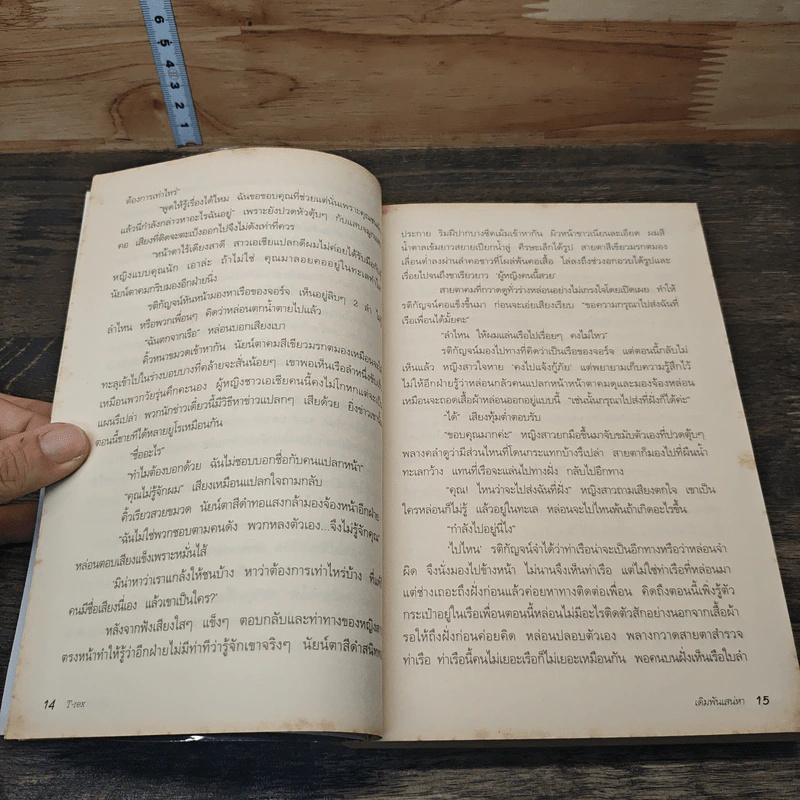 6 5 4 3 2 1
ต้องการเท่าไหร่"
"พูดให้รู้เรื่องได้ไหม ฉันขอขอบคุณที่ช่วยแต่นั่นเพราะคุณ
แล้วนี่กำลังกล่าวหาอะไรฉันอยู่" เพราะยังปวดหัวตุ้บๆ กับแสบจมูก
คอ เสียงที่ติดจะตะเบ็งออกไปจึงไม่ดังเท่าที่ควร
"หน้าตาไร้เดียงสาดี สาวเอเชียแปลกดีผมไม่ค่อยได้รับมือกับ
หญิงแบบคุณนัก เอาล่ะ ถ้าไม่ใช่ คุณมาลอยคออยู่ในทะเลทำไม"
นัยน์ตาคมกริบมองอีกฝ่ายนิ่ง
รติกัญจน์หันหน้ามองหาเรือของจอร์จ เห็นอยู่ลิบๆ 2 ลำ
ลำไหน หรือพวกเพื่อนๆ คิดว่าหล่อนตกน้ำตายไปแล้ว
"ฉันตกจากเรือ" หล่อนบอกเสียงเบา
คิ้วหนาขมวดเข้าหากัน นัยน์ตาคมสีเขียวมรกตมองเหมือน
ทะลุเข้าไปในร่างบอบบางที่คล้ายจะสั่นน้อยๆ เขาพอเห็นเรือลำหนึ่ง
เหมือนพวกวัยรุ่นคึกคะนอง ผู้หญิงชาวเอเชียคนนี้คงไม่โกหกแต่
แผนรึเปล่า พวกนักข่าวเดี๋ยวนี้มีวิธีหาข่าวแปลกๆ เสียด้วย ยิ่งข่าวเขา
ตอนนี้ขายที่ได้หลายยูโรเหมือนกัน
"ชื่ออะไร"
"ทำไมต้องบอกด้วย ฉันไม่ชอบบอกชื่อกับคนแปลกหน้า"
"คุณไม่รู้จักผม" เสียงเหมือนแปลกใจถามกลับ
คิ้วเรียวสวยขมวด นัยน์ตาสีดำทอแสงกล้ามองจ้องหน้าอีกฝ่าย
"ฉันไม่ใช่พวกชอบตามคนดัง พวกหลงตัวเอง...จึงไม่รู้จักคุณ"
หล่อนตอบเสียงแข็งเพราะหมั่นไส้
'มิน่าหาว่าเราแกล้งให้ชนบ้าง หาว่าต้องการเท่าไหร่บ้าง ที่แท้
คนมีชื่อเสียงนี่เอง แล้วเขาเป็นใคร?'
หลังจากฟังเสียงใสๆ แข็งๆ ตอบกลับและท่าทางของหญิง
ตรงหน้าทำให้รู้ว่าอีกฝ่ายไม่มีท่าทีว่ารู้จักเขาจริงๆ นัยน์ตาสีดำสนิท
14 T-rex
ประกาย ริมฝีปากบางซีดเม้มเข้าหากัน ผิวหน้าขาวเนียนละเอียด ผมสี
น้ำตาลเข้มยาวสยายเปียกน้ำลู่ คิรหะเล็กได้รูป สายตาสีเขียวมรกตมอง
เลื่อนต่ำลงผ่านลำคอขาวที่โผล่พ้นคอเสื้อ ไล่ลงถึงช่วงอกอวบได้รูปและ
เรื่อยไปจนถึงขาเรียวยาว 'ผู้หญิงคนนี้สวย'
สายตาคมที่กวาดดูทั่วร่างหล่อนอย่างไม่เกรงใจโดยเปิดเผย ทำให้
รติกัญจน์คอแข็งขึ้นมา ก่อนจะเอ่ยเสียงเรียบ "ขอความกรุณาไปส่งฉันที่
เรือเพื่อนได้มั้ยคะ"
"ลำไหน ให้ผมแล่นเรือไปเรื่อยๆ คงไม่ไหว"
รติกัญจน์มองไปทางที่คิดว่าเป็นเรือของจอร์จ แต่ตอนนี้กลับไม่
เห็นแล้ว หญิงสาวใจหาย 'คงไปแจ้งกู้ภัย' แต่พยายามเก็บความรู้สึกไว้
ไม่ให้อีกฝ่ายรู้ว่าหล่อนกลัวคนแปลกหน้าหน้าตาคมดุและมองจ้องหล่อน
เหมือนจะถอดเสื้อผ้าหล่อนออกอยู่แบบนี้ "เช่นนั้นกรุณาไปส่งที่ฝั่งก็ได้ค่ะ"
"ได้" เสียงทุ้มต่ำตอบรับ
"ขอบคุณมากค่ะ" หญิงสาวยกมือขึ้นมาจับขมับตัวเองที่ปวดตุ้บๆ
พลางคลำดูว่ามีส่วนไหนที่โดนกระแทกบ้างรึเปล่า สายตาก็มองไปที่ผืนน้ำ
ทะเลกว้าง แทนที่เรือจะแล่นไปทางฝั่ง กลับไปอีกทาง
"คุณ! ไหนว่าจะไปส่งฉันที่ฝั่ง" หญิงสาวถามเสียงตกใจ เขาเป็น
ใครหล่อนก็ไม่รู้ แล้วอยู่ในทะเล หล่อนจะไปไหนพ้นถ้าเกิดอะไรขึ้น
"กำลังไปอยู่นี่ไง"
"ไปไหน" รติกัญจน์จำได้ว่าท่าเรือน่าจะเป็นอีกทางหรือว่าหล่อนจำ
ผิด จึงนั่งมองไปข้างหน้า ไม่นานจึงเห็นท่าเรือ แต่ไม่ใช่ท่าเรือที่หล่อนมา
แต่ช่างเถอะถึงฝั่งก่อนแล้วค่อยหาทางติดต่อเพื่อน คิดถึงตอนนี้เพิ่งรู้ตัว
กระเป๋าอยู่ในเรือเพื่อนตอนนี้หล่อนไม่มีอะไรติดตัวสักอย่างนอกจากเสื้อผ้า
รอให้ถึงฝั่งก่อนค่อยคิด หล่อนปลอบตัวเอง พลางกวาดสายตาสำรวจ
ท่าเรือ ท่าเรือนี้คนไม่เยอะเรือก็ไม่เยอะเหมือนกัน พอคนบนฝั่งเห็นเรือใบลำ
เดิมพันเสน่หา 15